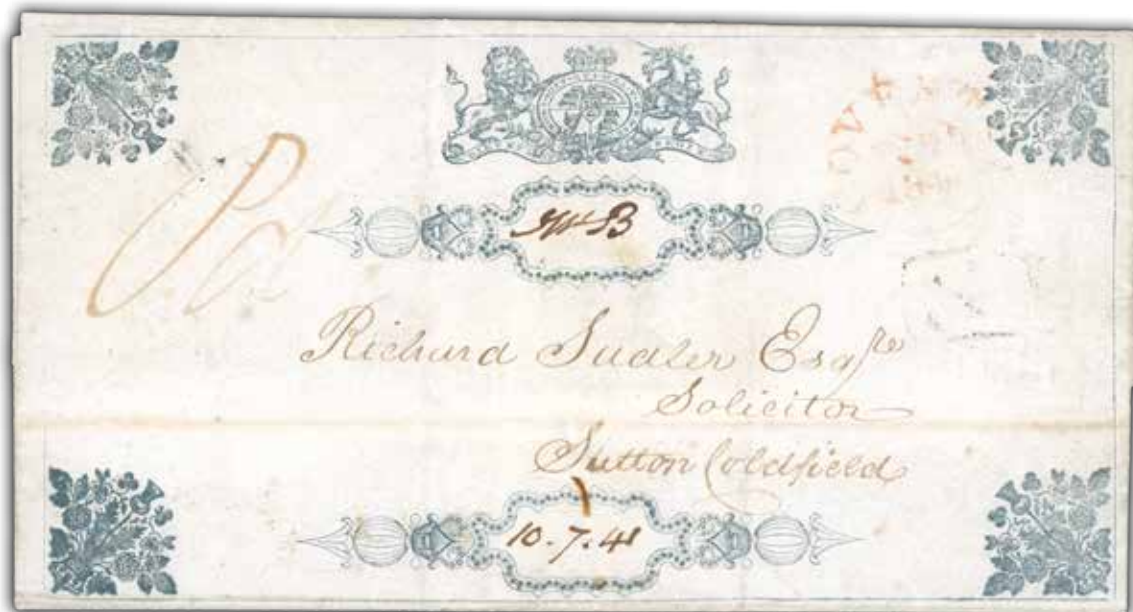 Richard Sadler Esqre
Solicitor
Sutton Coldfield
10.7.41